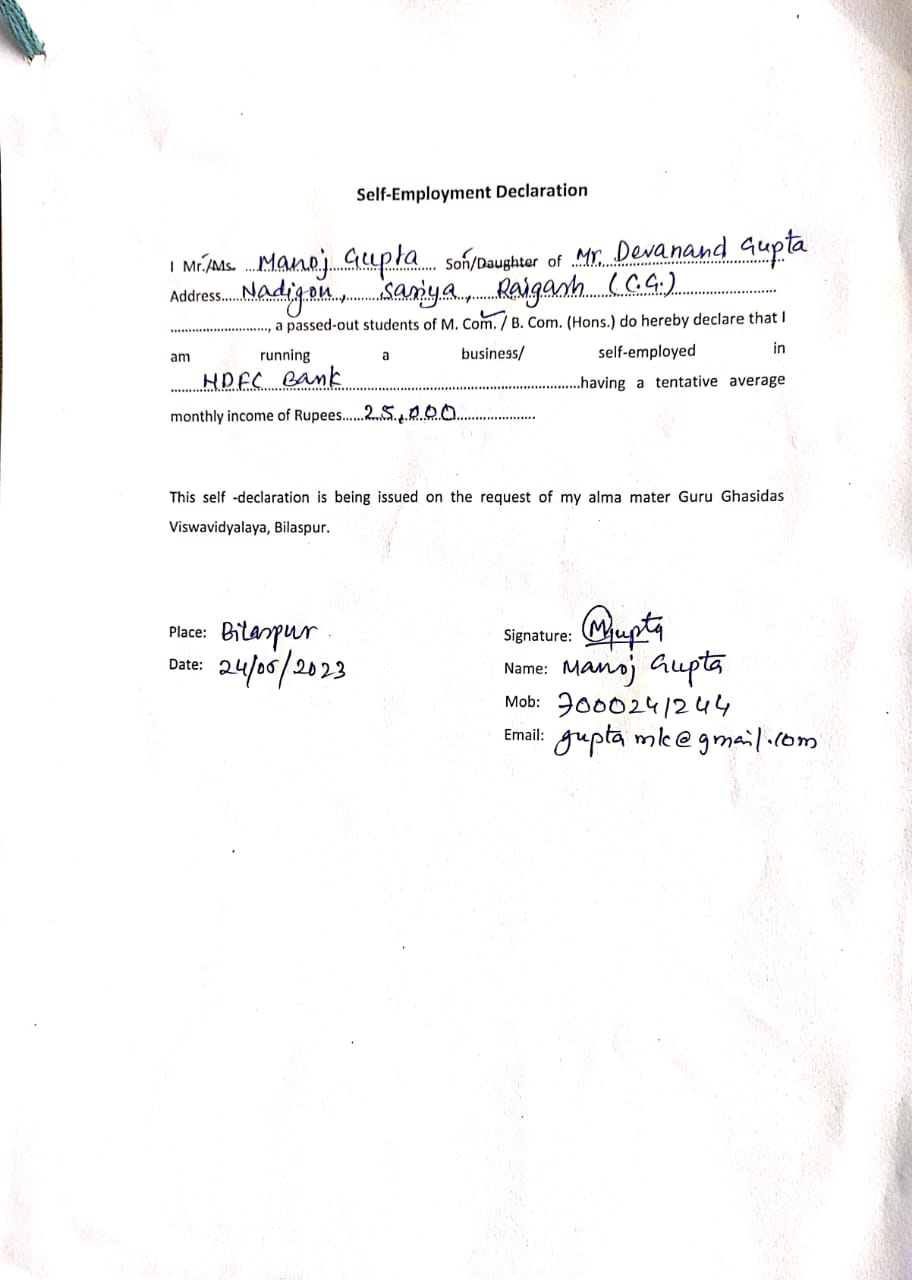 Self-Employment Declaration
I Mr./Ms. ....Manoj Gupta.... Son/Daughter of ..Mr. Devanand Gupta
Address.....Nadigon, Sariya, Raigarh (C.G.)..........
............................, a passed-out students of M. Com. / B. Com. (Hons.) do hereby declare that I
am running a business/ self-employed in
......HDFC Bank..........................................................having a tentative average
monthly income of Rupees......25,000....................
This self -declaration is being issued on the request of my alma mater Guru Ghasidas
Viswavidyalaya, Bilaspur.
Place: Bilaspur
Date: 24/06/2023
Signature: MGupta
Name: Manoj Gupta
Mob: 7000241244
Email: gupta mk@gmail.com